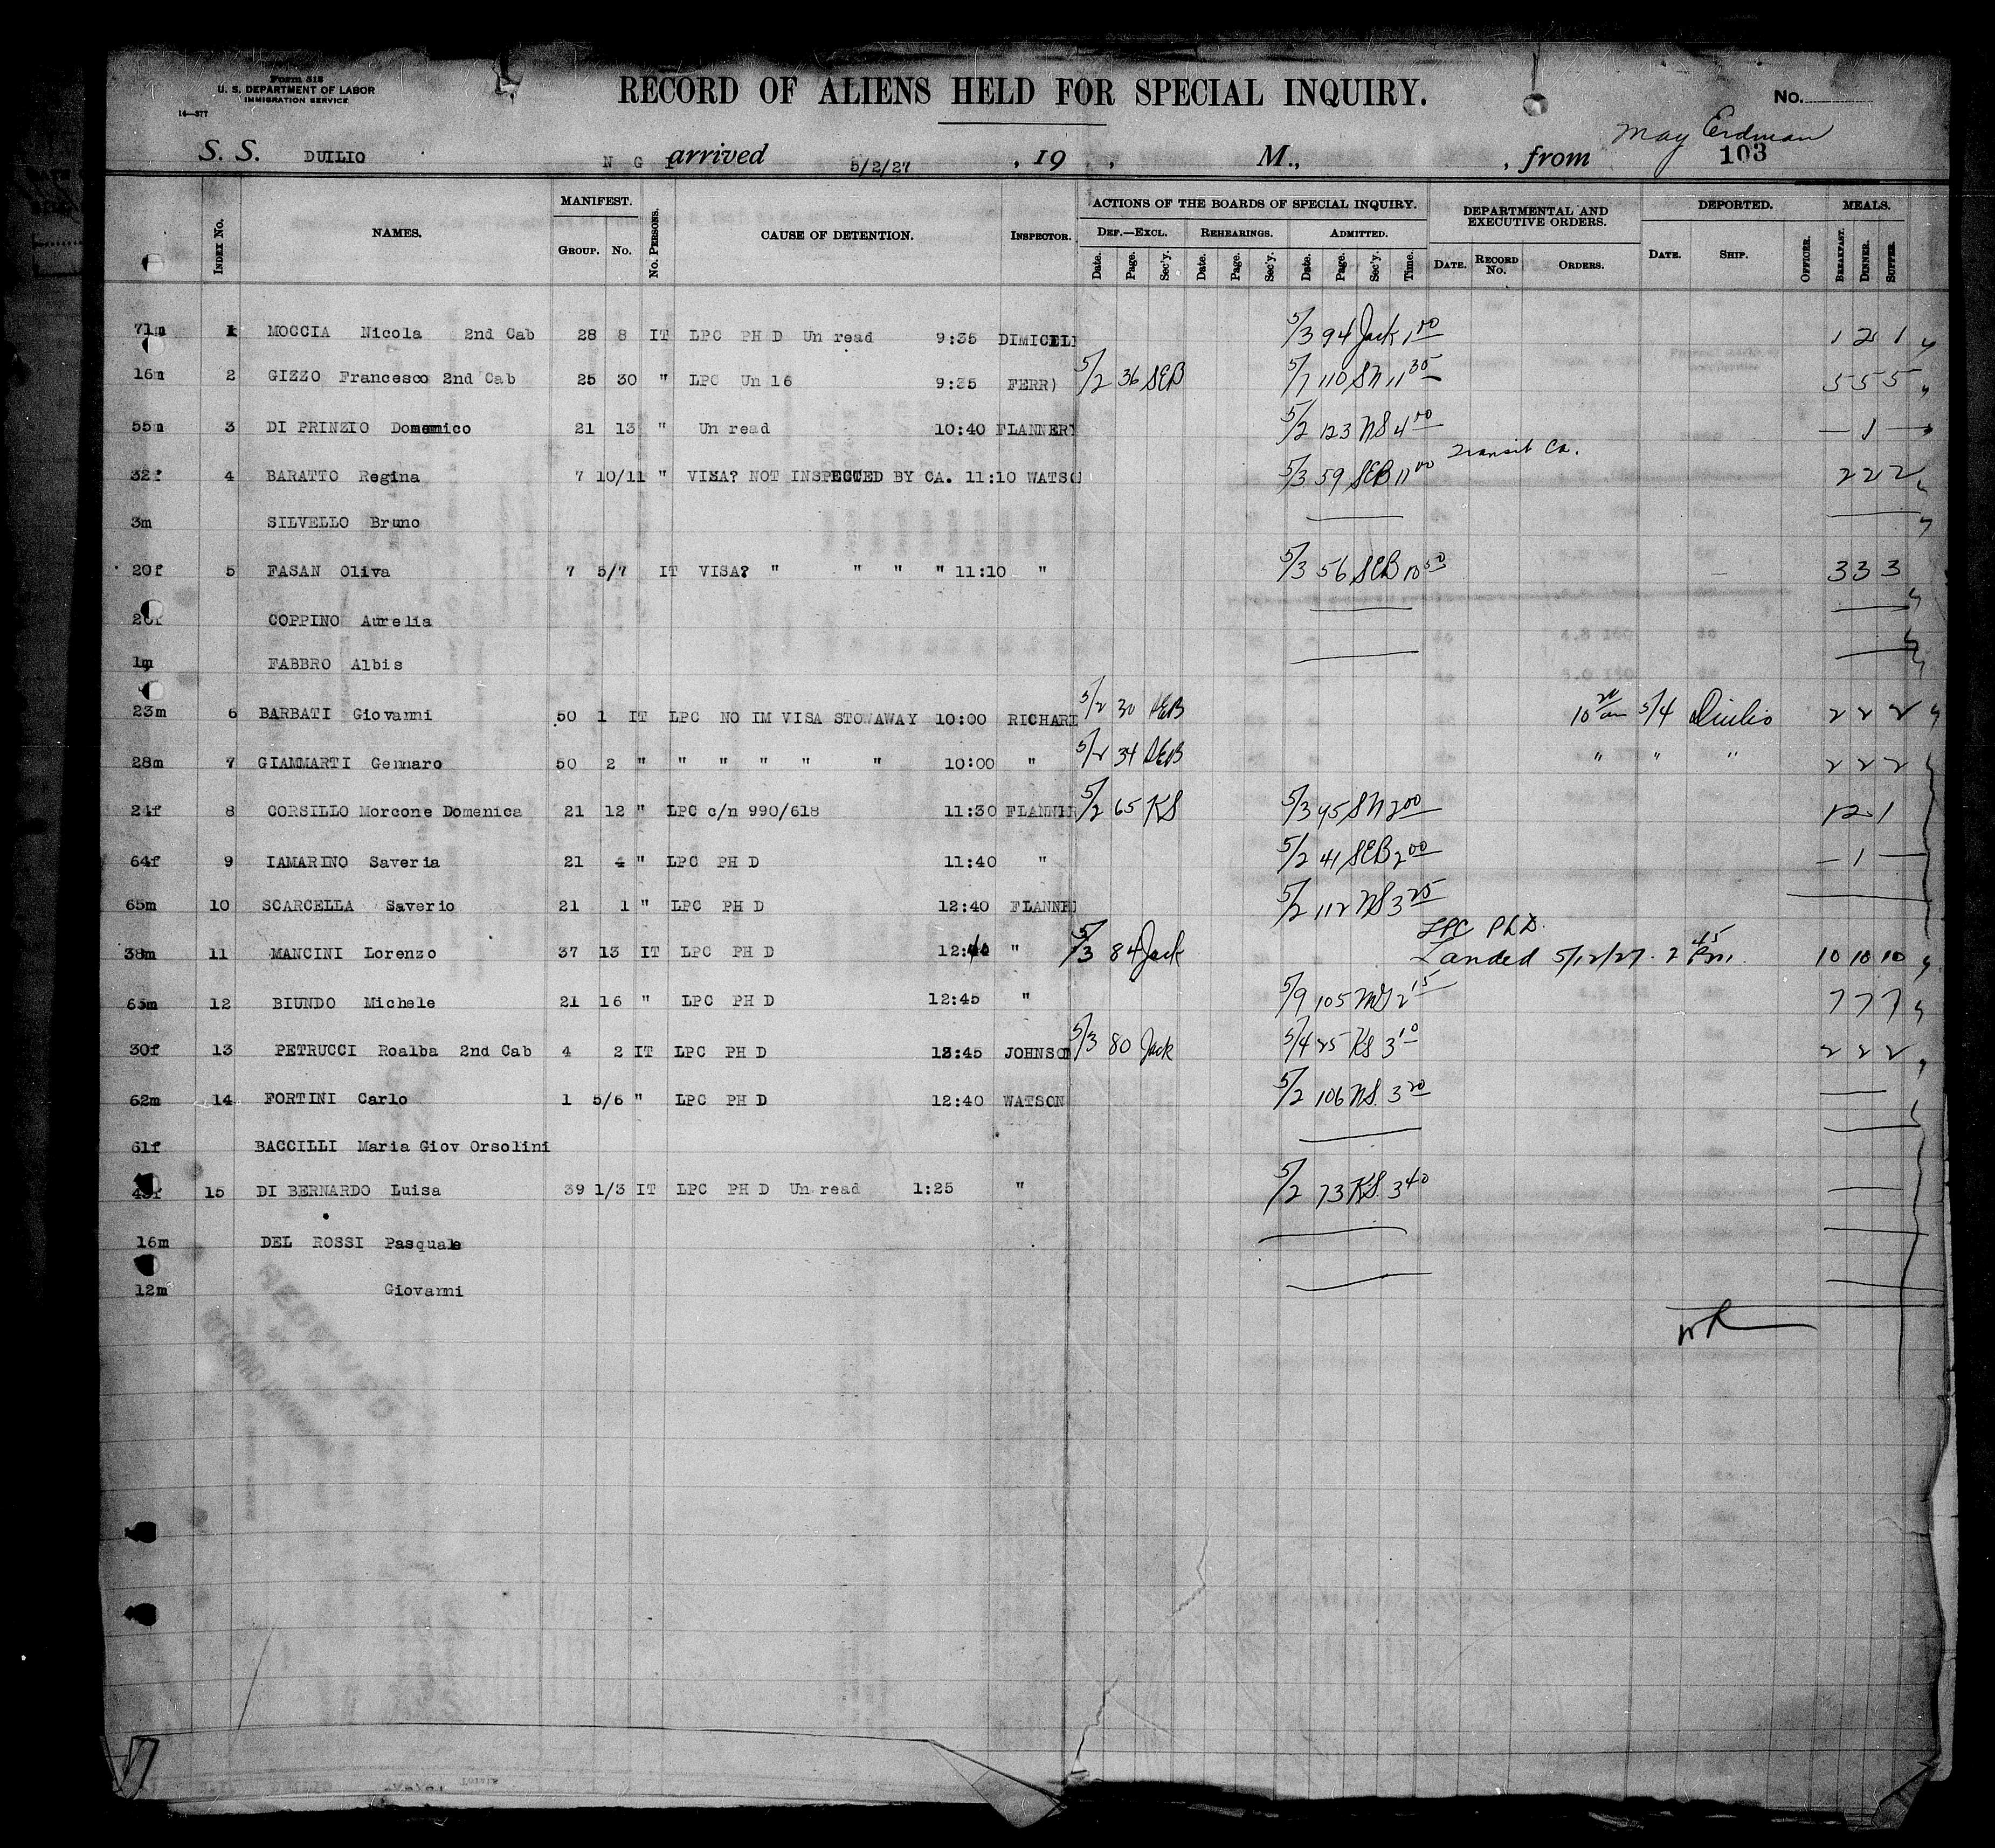 Form 518
U. S. DEPARTMENT OF LABOR
IMMIGRATION SERVICE
14—377
RECORD OF ALIENS HELD FOR SPECIAL INQUIRY.
No.
May Erdman
S. S. DUILIO N G I arrived 5/2/27 , 19 , M., , from 103
INDEX No. NAMES. MANIFEST. GROUP. No. No. PERSONS. CAUSE OF DETENTION. INSPECTOR. ACTIONS OF THE BOARDS OF SPECIAL INQUIRY. DEF.—EXCL. Date. Page. Sec'y. REHEARINGS. Date. Page. Sec'y. ADMITTED. Date. Page. Sec'y. Time. DEPARTMENTAL AND EXECUTIVE ORDERS. DATE. RECORD No. ORDERS. DEPORTED. DATE. SHIP. OFFICER. MEALS. BREAKFAST. DINNER. SUPPER.
71m 1 MOCCIA Nicola 2nd Cab 28 8 IT LPC PH D Un read 9:35 DIMICELI 5/3 94 Jack 1 00 1 2 1
16m 2 GIZZO Francesco 2nd Cab 25 30 " LPC Un 16 9:35 FERR) 5/2 36 SEB 5/7 110 SN 11 35 5 5 5
55m 3 DI PRINZIO Domenico 21 13 " Un read 10:40 FLANNERY 5/2 123 NS 4 00 — 1 —
Transit Ca.
32f 4 BARATTO Regina 7 10/11 " VISA? NOT INSPECTED BY CA. 11:10 WATSO 5/3 59 SEB 11 00 2 2 2
3m SILVELLO Bruno
20f 5 FASAN Oliva 7 5/7 IT VISA? " " " " 11:10 " 5/3 56 SEB 10 50 3 3 3
COPPINO Aurelia
1m FABBRO Albis
23m 6 BARBATI Giovanni 50 1 IT LPC NO IM VISA STOWAWAY 10:00 RICHARD 5/2 30 SEB 10 20 am 5/4 Duilio 2 2 2
28m 7 GIAMMARTI Gennaro 50 2 " " " " " " 10:00 " 5/2 34 SEB " " " 2 2 2
24f 8 CORSILLO Morcone Domenica 21 12 " LPC c/n 990/618 11:30 FLANNER 5/2 65 KS 5/3 45 SN 2 00 1 2 1
64f 9 IAMARINO Saveria 21 4 " LPC PH D 11:40 " 5/2 41 SEB 2 00 — 1 —
65m 10 SCARCELLA Saverio 21 1 " LPC PH D 12:40 FLANNER 5/2 112 NS 3 25
LPC Ph.D.
38m 11 MANCINI Lorenzo 37 13 IT LPC PH D 12:40 " 5/3 84 Jack Landed 5/12/27. 2 45 Pm. 10 10 10
65m 12 BIUNDO Michele 21 16 " LPC PH D 12:45 " 5/9 105 2 15 7 7 7
30f 13 PETRUCCI Roalba 2nd Cab 4 2 IT LPC PH D 12:45 JOHNSON 5/3 80 Jack 5/4 25 KS 3 10 2 2 2
62m 14 FORTINI Carlo 1 5/6 " LPC PH D 12:40 WATSON 5/2 106 NS. 3 20
61f BACCILLI Maria Giov Orsolini
15 DI BERNARDO Luisa 39 1/3 IT LPC PH D Un read 1:25 " 5/2 73 KS. 3 40
16m DEL ROSSI Pasquale
12m Giovanni